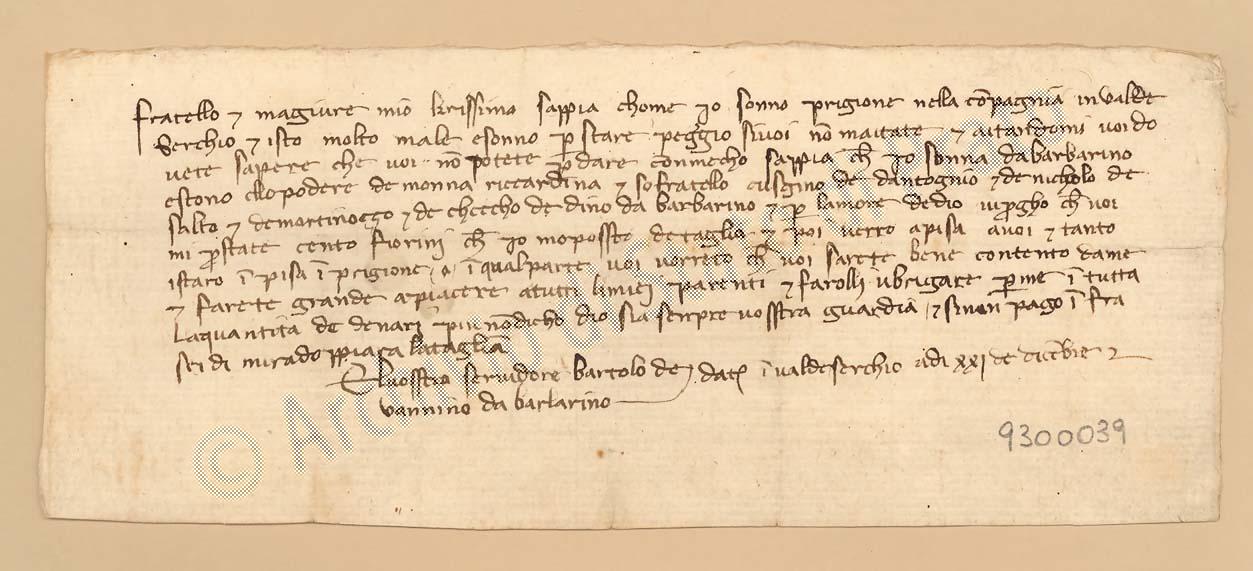 fratello & magiure mio karissimo sappia chome Io sonno prigione nella cōpagnia in valde
serchio & isto molto male e sonno p stare peggio si voi nō maitate & aitandomi voi do
vete sapere che voi nō potete pdare con mecho sappia ch Io sonna da barbarino
e stono ello podere de monna riccardina & so fratello cusgino de dantognio & de nicholo de
salto & de martinozzo & de checcho de dino da barbarino & p lamore de dio vi pgho ch voi
mi pstate cento fiorini ch Io mo possto de taglia & poi verro a pisa a voi & tanto
istaro ī pisa ī prigione o ī qual parte voi vorrete ch voi sarete bene contento da me
& farete grande apiacere a tutti li miei parenti & farolli ubrigare p me ī tutta
la quantita de denari piu nō dicho dio sia senpre vosstra guardia & si non pago ī fra
sei di mi radoppiara la taglia
El vosstro servidore bartolo de datᵃ ī valdeserchio adi xxi de dicēbre
vannino da barbarino
9300039
© Archivio di